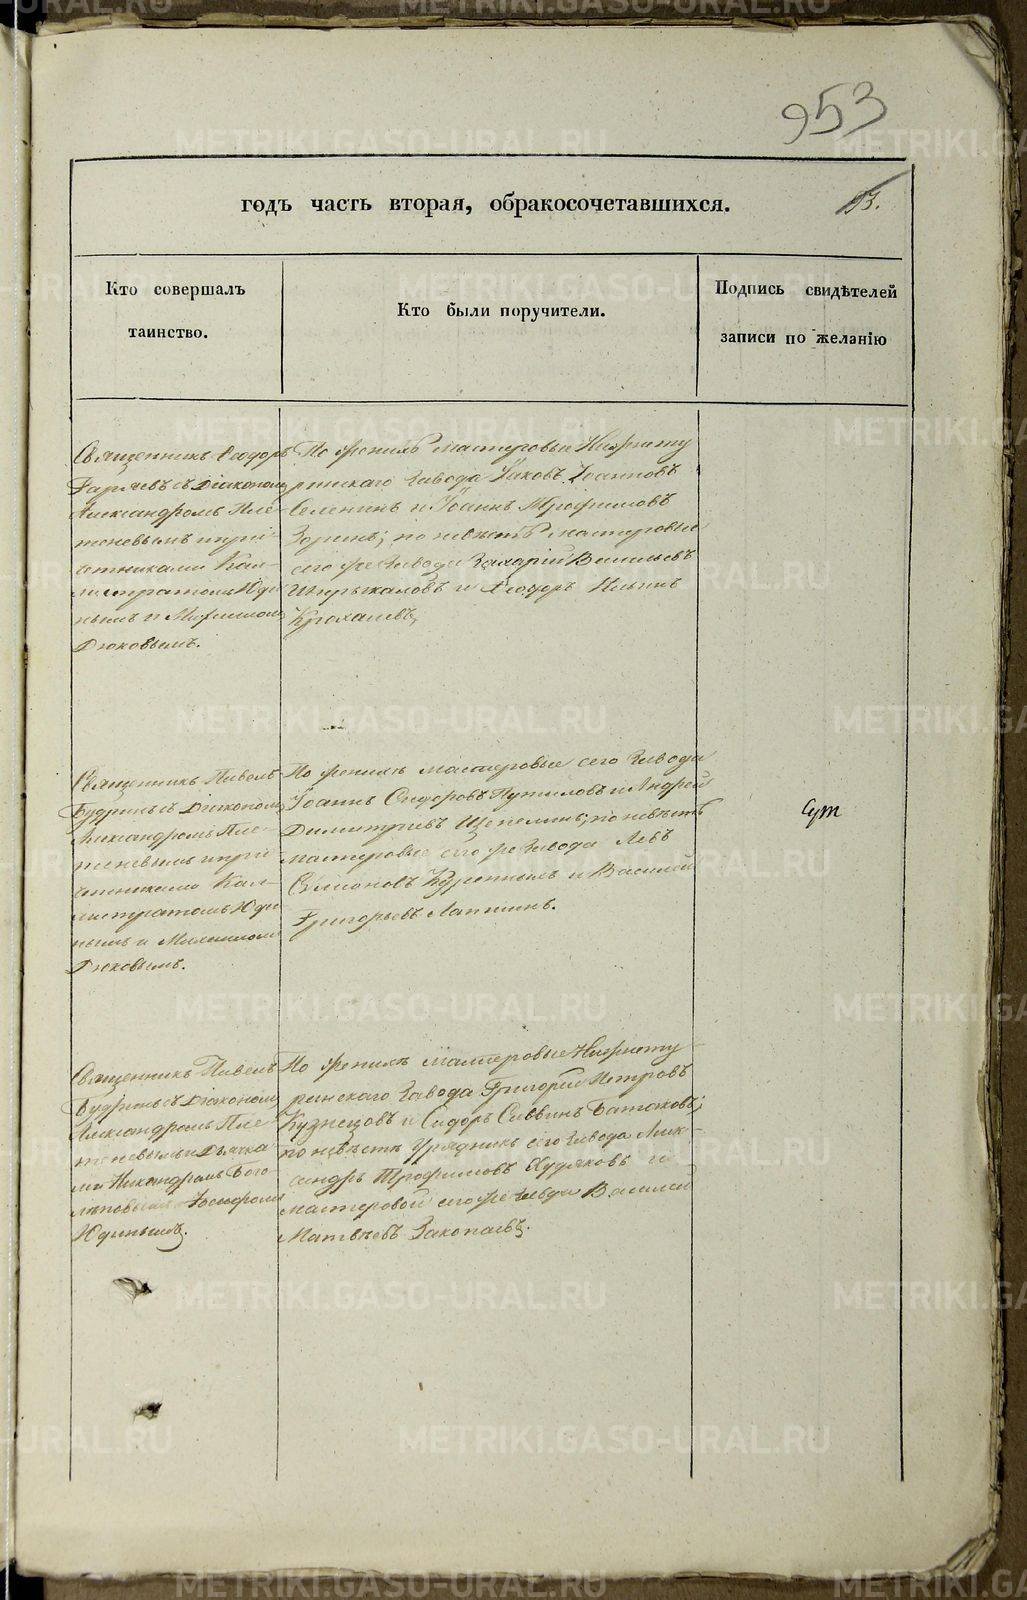 953
годъ часть вторая, обракосочетавшихся.
93.
Кто совершалъ
таинство.
Кто были поручители.
Подпись свидѣтелей
записи по желанію
Священникъ Ѳеодоръ
съ Діакономъ
Александромъ Пле-
теневымъ и при-
четниками Кал-
листратомъ Юди
нымъ и Михаиломъ
Дюковымъ.
По женихѣ мастеровые Нижнету
ринскаго Завода Іаковъ Іоанновъ
Селенинъ и Іоаннъ Трофимовъ
Зоринъ; по невѣстѣ мастеровые
сего же Завода Захарій Васильевъ
и Ѳеодоръ Ильинъ
Священникъ Павелъ
Будринъ съ Діакономъ
Александромъ Пле-
теневымъ и при-
четниками Кал-
листратомъ Юди
нымъ и Михаиломъ
Дюковымъ.
По женихѣ мастеровые сего Завода
Іоаннъ Сидоровъ Путиловъ и Андрей
Димитріевъ Щепелинъ; по невѣстѣ
мастеровые сего же Завода Левъ
Симоновъ и Василій
Григорьевъ Лапшинъ.
Священникъ Павелъ
Будринъ съ Діакономъ
Александромъ Пле-
теневымъ и Дьячка
ми Никандромъ Бого-
Юдинымъ.
По женихѣ мастеровые Нижнету-
ринскаго Завода Григорій Петровъ
Кузнецовъ и Сидоръ Саввинъ Батаковъ;
по невѣстѣ Урядникъ сего Завода Алек-
сандръ Трофимовъ Худяковъ и
мастеровой сего же Завода Василій
Матвѣевъ Закопаевъ.
METRIKI.GASO-URAL.RU